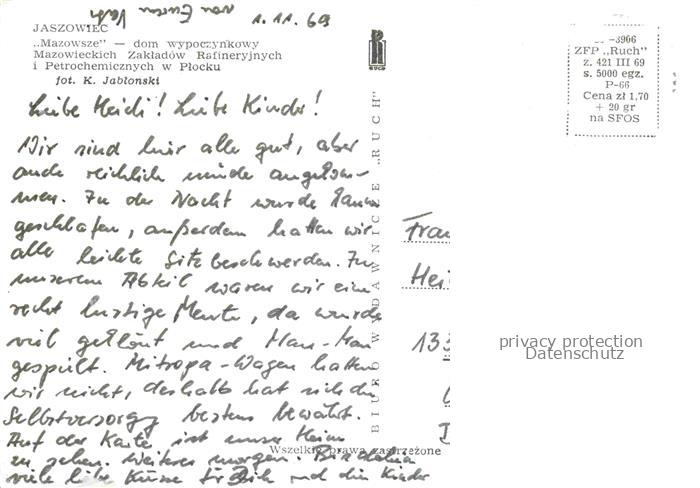 von Eurem Vati
1.11.69
JASZOWIEC
„Mazowsze" — dom wypoczynkowy
Mazowieckich Zakładów Rafineryjnych
i Petrochemicznych w Płocku
fot. K. Jabłonski
RUCH
-3966
ZFP „Ruch"
z. 421 III 69
s. 5000 egz.
P-66
Cena zł 1,70
+ 20 gr
na SFOS
BIURO WYDAWNICZE „RUCH"
Liebe Heidi! Liebe Kinder!
Wir sind hier alle gut, aber
auch reichlich müde angekom-
men. In der Nacht wurde kaum
geschlafen, außerdem hatten wir
alle leichte Sitzbeschwerden. In
unserem Abteil waren wir eine
recht lustige Meute, da wurde
viel geflönt und Mau-Mau
gespielt. Mitropa-Wagen hatten
wir nicht, deshalb hat sich die
Selbstversorgg bestens bewährt.
Auf der Karte ist unser Heim
zu sehen. Weiteres morgen. Bis dahin
viele liebe Küsse für Dich und die Kinder
Frau
Hei
133
privacy protection
Datenschutz
Wszelkie prawa zastrzeżone